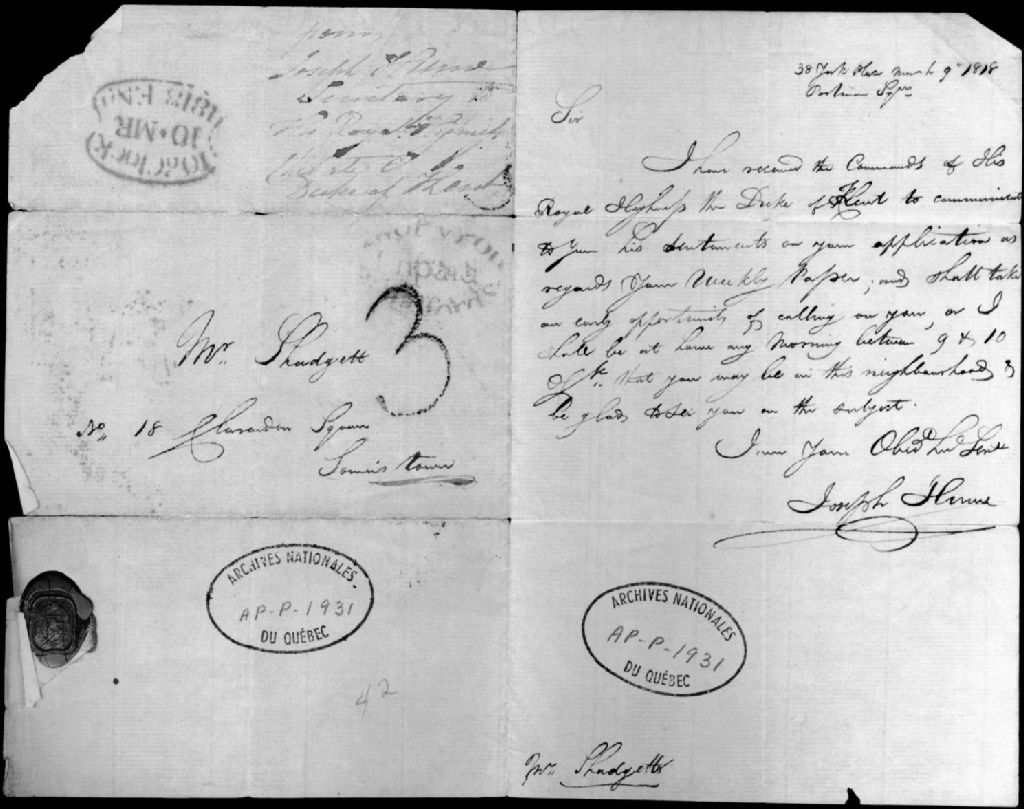 from
Joseph Hume
Secretary to
His Royal Highness
Duke of Kent
10 o'Clock
10 • MR
1818 F.Nn
3
Mr. Shadgett
No. 18 Clarendon Square
Somers town
ARCHIVES NATIONALES
AP-P-1931
DU QUÉBEC
42
38 York Place March 9th 1818
Portman Sqre
Sir
I have received the Commands of His
Royal Highness the Duke of Kent to communicate
to you his sentiments on your application as
regards your Weekly Paper; and shall take
an early opportunity of calling on you, or I
shall be at home any Morning between 9 & 10
that you may be in this neighbourhood, &
be glad to see you on the subject.
I am Your Obedt. Servt
Joseph Hume
ARCHIVES NATIONALES
AP-P-1931
DU QUÉBEC
Mr. Shadgett